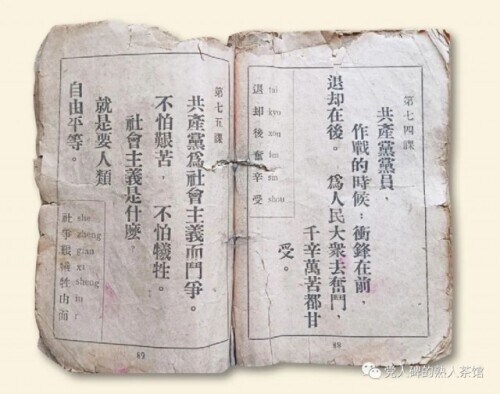 第七四課
共產黨黨員，
作戰的時候；衝鋒在前，
退却在後。 爲人民大衆去奮鬥，
千辛萬苦都甘
受。
退 tui
却 kyo
後 xou
奮 fen
辛 sin
受 shou
88
第七五課
共產黨爲社會主義而鬥爭。
不怕艱苦， 不怕犧牲。
社會主義是什麼，
就是要人類
自由平等。
社 she
爭 zheng
艱 gian
犧 xi
牲 sheng
由
而
89
党人碑的熟人茶馆